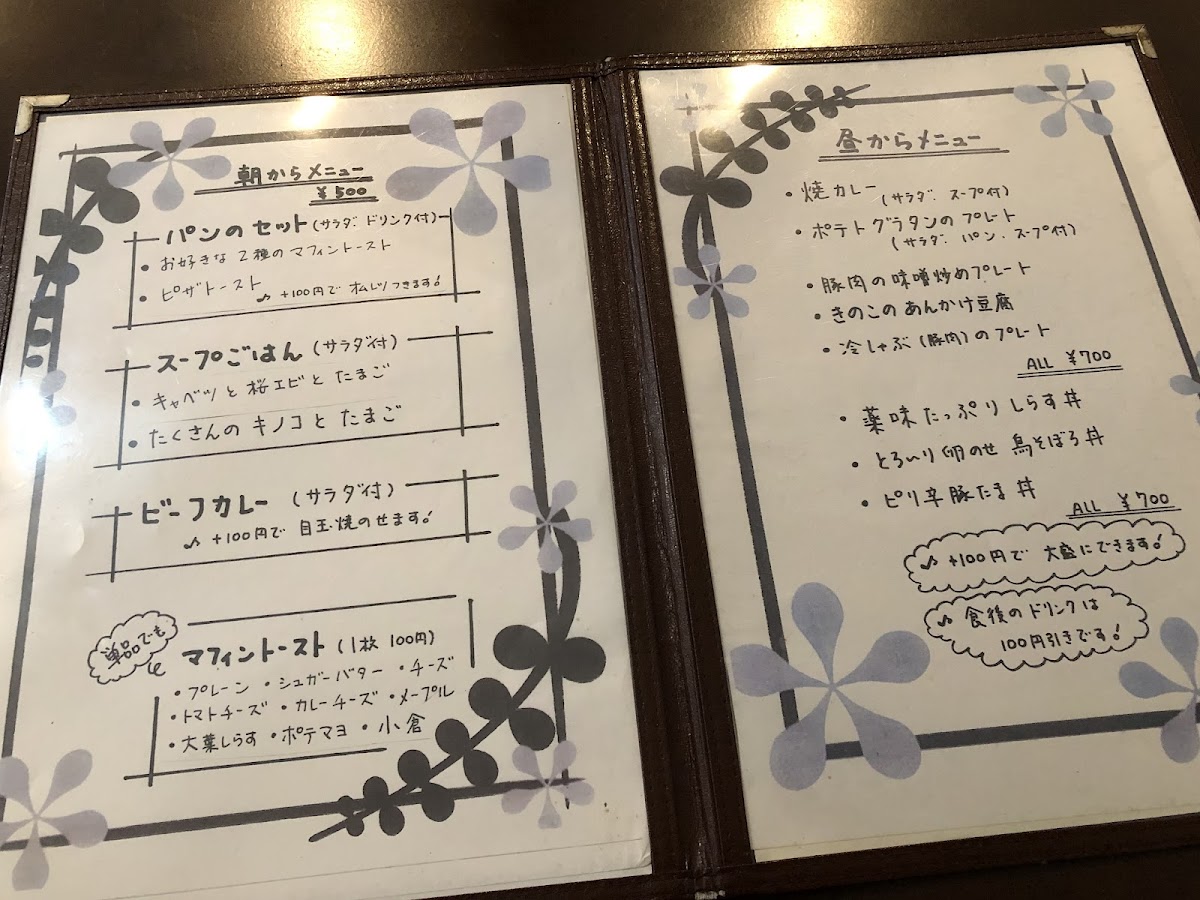 朝からメニュー
¥500
パンのセット(サラダ・ドリンク付)
・お好きな2種のマフィントースト
・ピザトースト
♪ +100円でオムレツつきます!
スープごはん(サラダ付)
・キャベツと桜エビとたまご
・たくさんのキノコとたまご
ビーフカレー(サラダ付)
♪ +100円で目玉焼のせます!
単品でも
マフィントースト(1枚 100円)
・プレーン ・シュガーバター ・チーズ
・トマトチーズ ・カレーチーズ ・メープル
・大葉しらす ・ポテマヨ ・小倉
昼からメニュー
・焼カレー(サラダ・スープ付)
・ポテトグラタンのプレート
(サラダ・パン・スープ付)
・豚肉の味噌炒めプレート
・きのこのあんかけ豆腐
・冷しゃぶ(豚肉)のプレート
ALL ¥700
・薬味たっぷりしらす丼
・とろ〜り卵のせ鳥そぼろ丼
・ピリ辛豚たま丼
ALL ¥700
♪ +100円で大盛にできます!
♪ 食後のドリンクは
100円引きです!